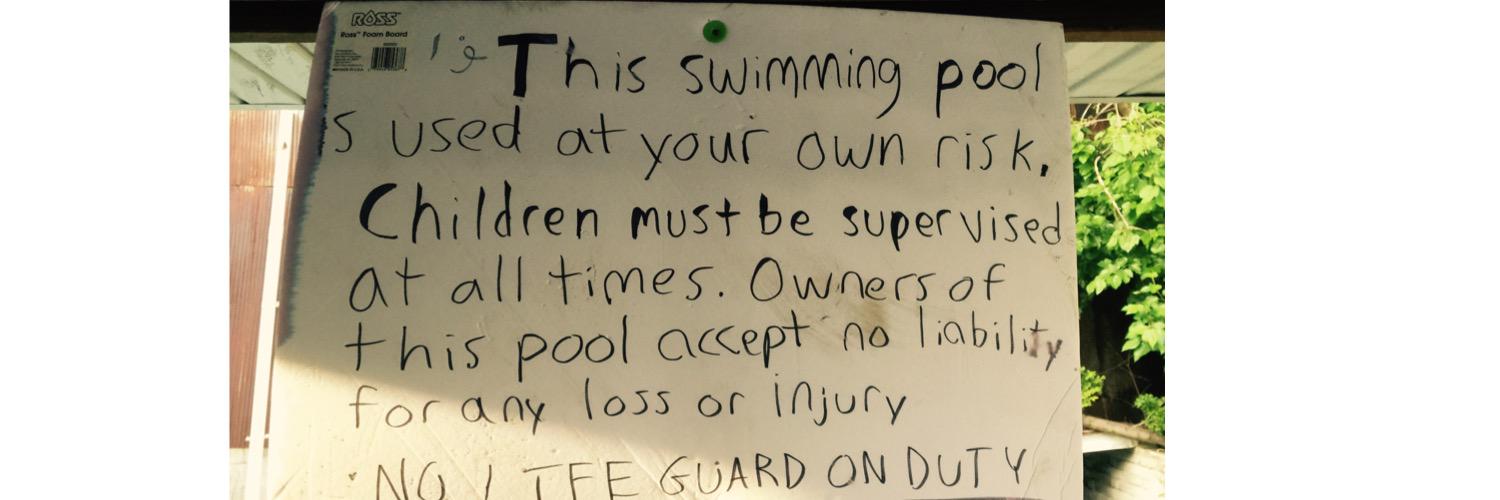 ROSS
Ross™ Foam Board
This swimming pool
s used at your own risk.
Children must be supervised
at all times. Owners of
this pool accept no liability
for any loss or injury
NO LIFE GUARD ON DUTY